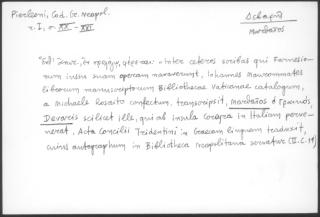 Pierleoni, Cod. Gr. Neapol.
τ. I, σ. XX – XXI
Δεβαρῆς
Ματθαῖος
inter ceteros scribas qui Farnesio-
rum iussu suam operam navaverunt, Iohannes Maurommates
librorum manuscriptorum Bibliothecae Vaticanae catalogum,
a Michaele Rosaito confectum, transcripsit, Ματθαῖος ὁ
Devaris scilicet ille, qui ab insula Corcyra in Italiam perve-
nerat. Acta Concilii Tridentini in Graecam linguam traduxit,
cuius autographum in Bibliotheca neapolitana servatur (II.C.19)